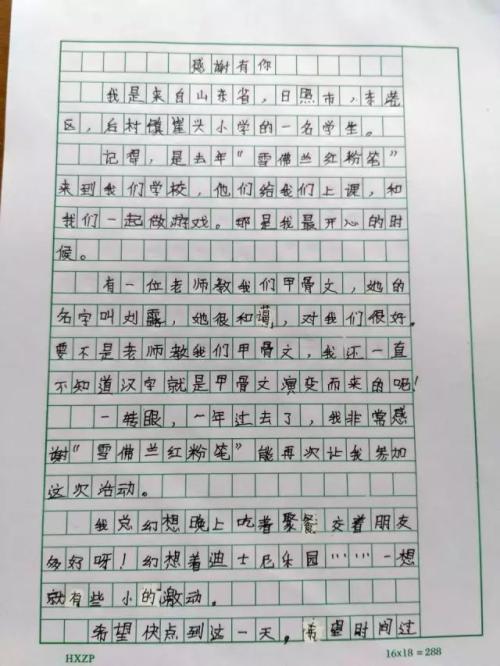 感谢有你
我是来自山东省,日照市,东港
区,后村镇崖头小学的一名学生。
记得,是去年"雪佛兰红粉笔"
来到我们学校,他们给我们上课,和
我们一起做游戏。那是我最开心的时
候。
有一位老师教我们甲骨文,她的
名字叫刘露,她很和蔼,对我们很好。
要不是老师教我们甲骨文,我还一直
不知道汉字就是甲骨文演变而来的呢!
一转眼,一年过去了,我非常感
谢"雪佛兰红粉笔"能再次让我参加
这次活动。
我总幻想晚上吃着聚餐交着朋友
多好呀!幻想着迪士尼乐园……一想
就有些小的激动。
希望快点到这一天。希望时间过
HXZP
16x18=288